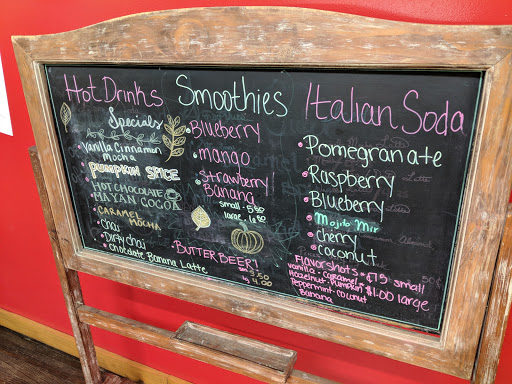 Hot Drinks
Specials
Vanilla Cinnamon
mocha
PUMPKIN SPICE
HOT CHOCOLATE
MAYAN COCOA
CARAMEL
MOCHA
Chai
Dirty chai
Chocolate Banana Latte
Smoothies
Blueberry
mango
Strawberry
Banana
small - 5.50
large
BUTTER BEER!
3.50
4.00
Italian Soda
Pomegranate
Raspberry
Blueberry
Mojito Mix
cherry
coconut
Flavor shots = ¢75 small
vanilla - caramel
Hazelnut - Pumpkin $1.00 large
Peppermint - coconut
Banana